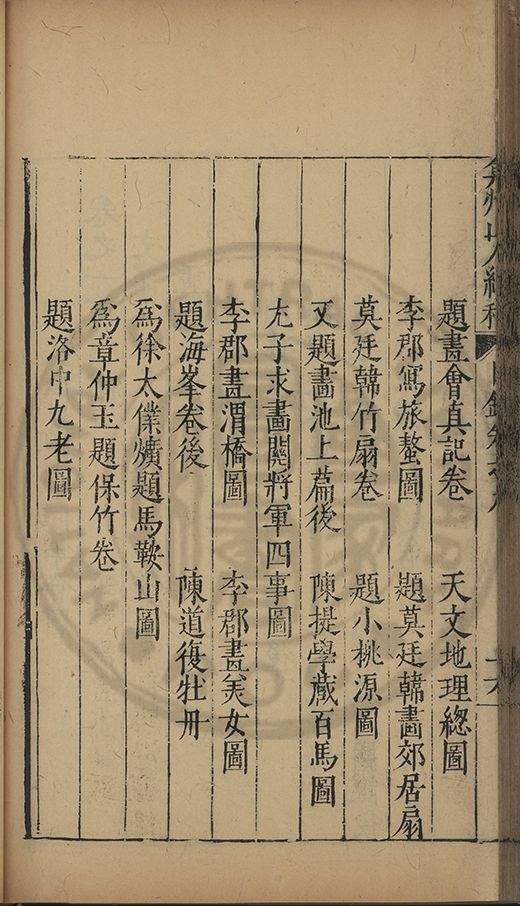 弇州山人續稿
題畫會真記卷　天文地理總圖
李郡寫旅螯圖　題莫廷韓畫郊居扇
莫廷韓竹扇卷　題小桃源圖
又題畫池上篇後　陳提學藏百馬圖
尤子求畫關將軍四事圖
李郡畫渭橋圖　李郡畫美女圖
題海峯卷後　陳道復牡丹
為徐太僕壙題馬鞍山圖
為章仲玉題保竹卷
題洛中九老圖